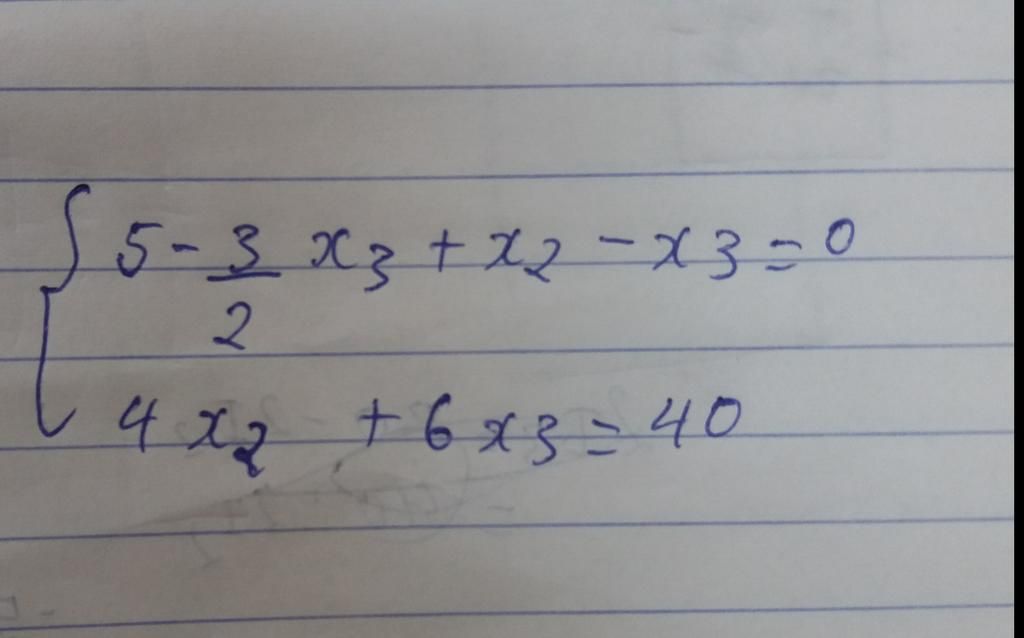 5 - 3/2 x3 + x2 - x3 = 0
4x2 + 6x3 = 40